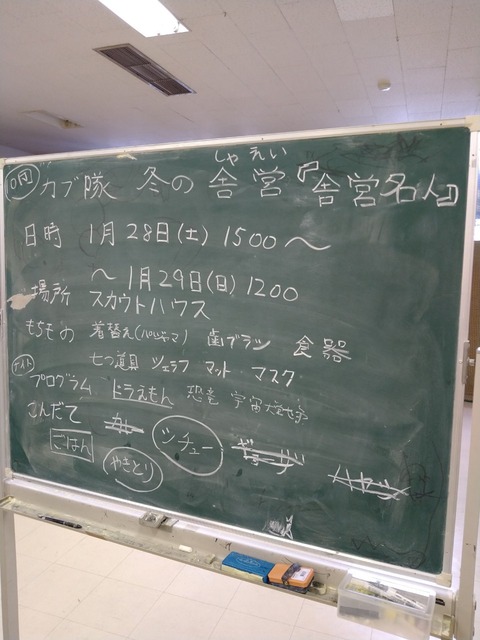 しゃえい
カブ隊 冬の舎営『舎営名人』
日時 1月28日(土) 1500〜
〜1月29日(日) 1200
場所 スカウトハウス
もちもの 着替え(パジャマ) 歯ブラシ 食器
七つ道具 シュラフ マット マスク
ナイト
プログラム ドラえもん 恐竜 宇宙大好き
こんだて カレー シチュー ギョーザ ハヤシ
ごはん やきとり